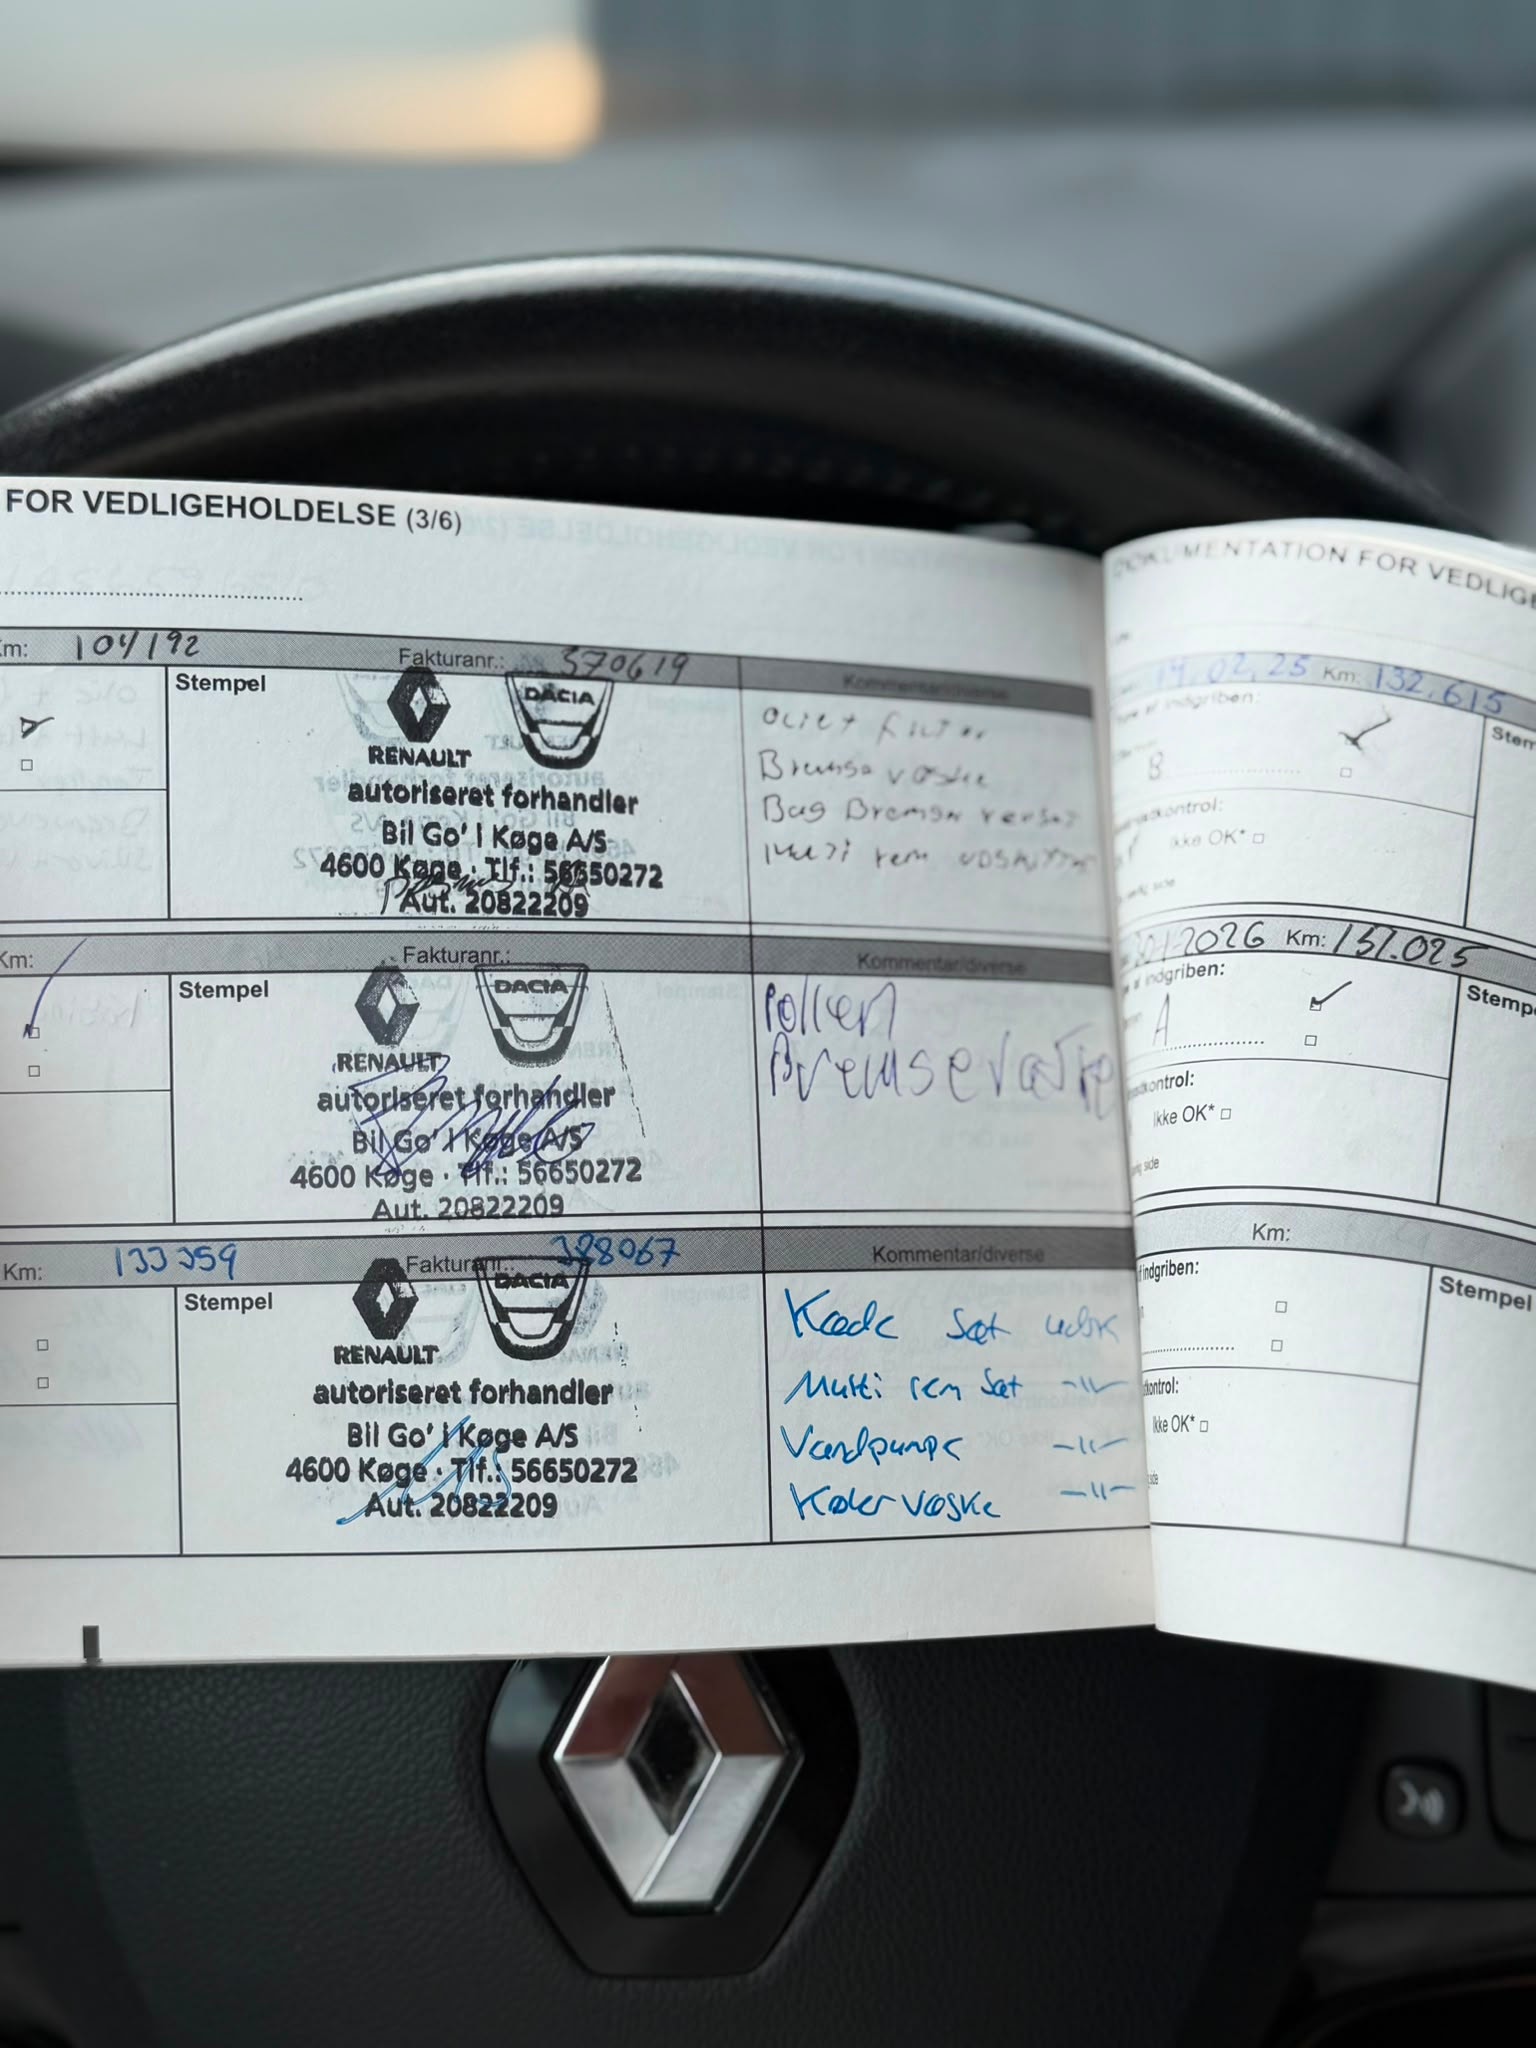 FOR VEDLIGEHOLDELSE (3/6)
Km: 104192
Fakturanr.: 370619
Kommentar/diverse
Stempel
RENAULT
DACIA
autoriseret forhandler
Bil Go' i Køge A/S
4600 Køge · Tlf.: 56650272
Aut. 20822209
Bremse væske
Bag Bremser
Multi rem
Km:
Fakturanr.:
Kommentar/diverse
Stempel
RENAULT
DACIA
autoriseret forhandler
Bil Go' i Køge A/S
4600 Køge · Tlf.: 56650272
Aut. 20822209
Pollen
Bremsevæske
Km: 133359
Fakturanr.: 388067
Kommentar/diverse
Stempel
RENAULT
DACIA
autoriseret forhandler
Bil Go' i Køge A/S
4600 Køge · Tlf.: 56650272
Aut. 20822209
Kæde sæt udsk
Multi rem sæt -"-
Vandpumpe -"-
Køler væske -"-
DOKUMENTATION FOR VEDLIGE
19.02.25 Km: 132.615
indgriben:
B
Ikke OK*
Stem
2026 Km: 151.025
indgriben:
A
kontrol:
Ikke OK*
side
Stemp
Km:
indgriben:
kontrol:
Ikke OK*
Stempel